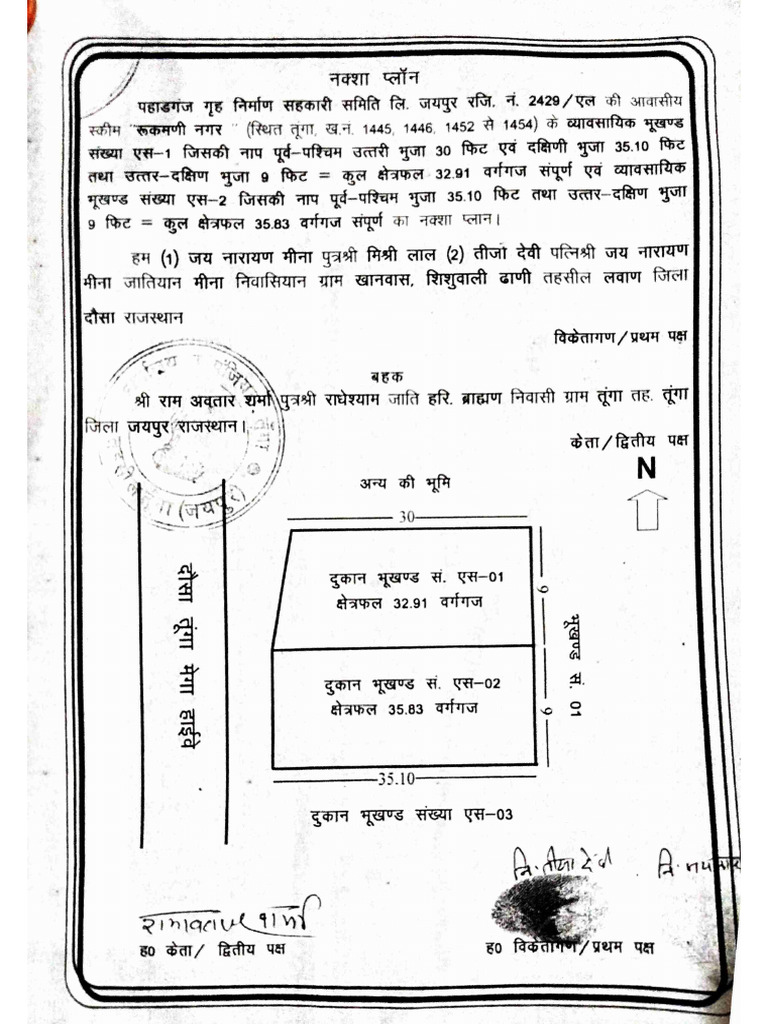 नक्शा प्लॉन
पहाडगंज गृह निर्माण सहकारी समिति लि. जयपुर रजि. नं. 2429/एल की आवासीय
स्कीम "रूकमणी नगर " (स्थित तूंगा, ख.नं. 1445, 1446, 1452 से 1454) के व्यावसायिक भूखण्ड
संख्या एस-1 जिसकी नाप पूर्व-पश्चिम उत्तरी भुजा 30 फिट एवं दक्षिणी भुजा 35.10 फिट
तथा उत्तर-दक्षिण भुजा 9 फिट = कुल क्षेत्रफल 32.91 वर्गगज संपूर्ण एवं व्यावसायिक
भूखण्ड संख्या एस-2 जिसकी नाप पूर्व-पश्चिम भुजा 35.10 फिट तथा उत्तर-दक्षिण भुजा
9 फिट = कुल क्षेत्रफल 35.83 वर्गगज संपूर्ण का नक्शा प्लान।
हम (1) जय नारायण मीना पुत्रश्री मिश्री लाल (2) तीजा देवी पत्निश्री जय नारायण
मीना जातियान मीना निवासियान ग्राम खानवास, शिशुवाली ढाणी तहसील लवाण जिला
दौसा राजस्थान
विकेतागण/प्रथम पक्ष
बहक
श्री राम अवतार शर्मा पुत्रश्री राधेश्याम जाति हरि. ब्राह्मण निवासी ग्राम तूंगा तह. तूंगा
जिला जयपुर राजस्थान।
केता/द्वितीय पक्ष
N
अन्य की भूमि
30
दुकान भूखण्ड सं. एस-01
क्षेत्रफल 32.91 वर्गगज
9
दौसा तूंगा मेगा हाईवे
भूखण्ड सं. 01
दुकान भूखण्ड सं. एस-02
क्षेत्रफल 35.83 वर्गगज
9
35.10
दुकान भूखण्ड संख्या एस-03
(जयपुर)
नि. तीजा देवी
रामावतार शर्मा
ह0 केता/ द्वितीय पक्ष
ह0 विकेतागण/प्रथम पक्ष